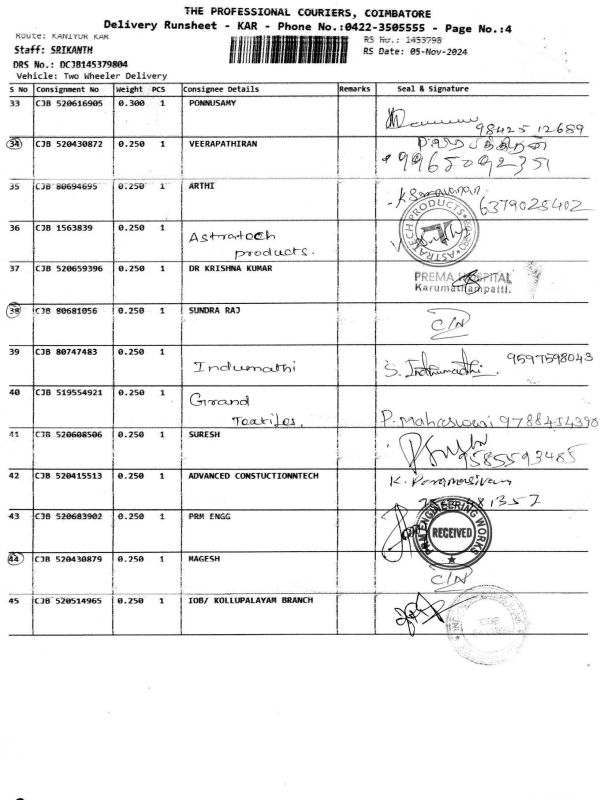 THE PROFESSIONAL COURIERS, COIMBATORE
Delivery Runsheet - KAR - Phone No.:0422-3505555 - Page No.:4
Route: KANIYUR KAR
RS No.: 1453798
Staff: SRIKANTH
RS Date: 05-Nov-2024
DRS No.: DCJB145379804
Vehicle: Two Wheeler Delivery
S No Consignment No Weight PCS Consignee Details Remarks Seal & Signature
33 CJB 520616905 0.300 1 PONNUSAMY
98425 12689
34 CJB 520430872 0.250 1 VEERAPATHIRAN
9965092351
35 CJB 80694695 0.250 1 ARTHI K Saravanan.
6379025402
36 CJB 1563839 0.250 1 Astratech products. ASTRATECH PRODUCTS
37 CJB 520659396 0.250 1 DR KRISHNA KUMAR PREMA HOSPITAL
Karumathampatti.
38 CJB 80681056 0.250 1 SUNDRA RAJ
C/N
39 CJB 80747483 0.250 1 Indumathi S. Indhumadhi. 9597598043
40 CJB 519554921 0.250 1 Grand Textiles. P. Maheswari 9788454390
41 CJB 520608506 0.250 1 SURESH
9585593485
42 CJB 520415513 0.250 1 ADVANCED CONSTUCTIONNTECH K. Paramasivam
81357
43 CJB 520683902 0.250 1 PRM ENGG PRM ENGINEERING WORKS
RECEIVED
44 CJB 520430879 0.250 1 MAGESH
C/N
45 CJB 520514965 0.250 1 IOB/ KOLLUPALAYAM BRANCH